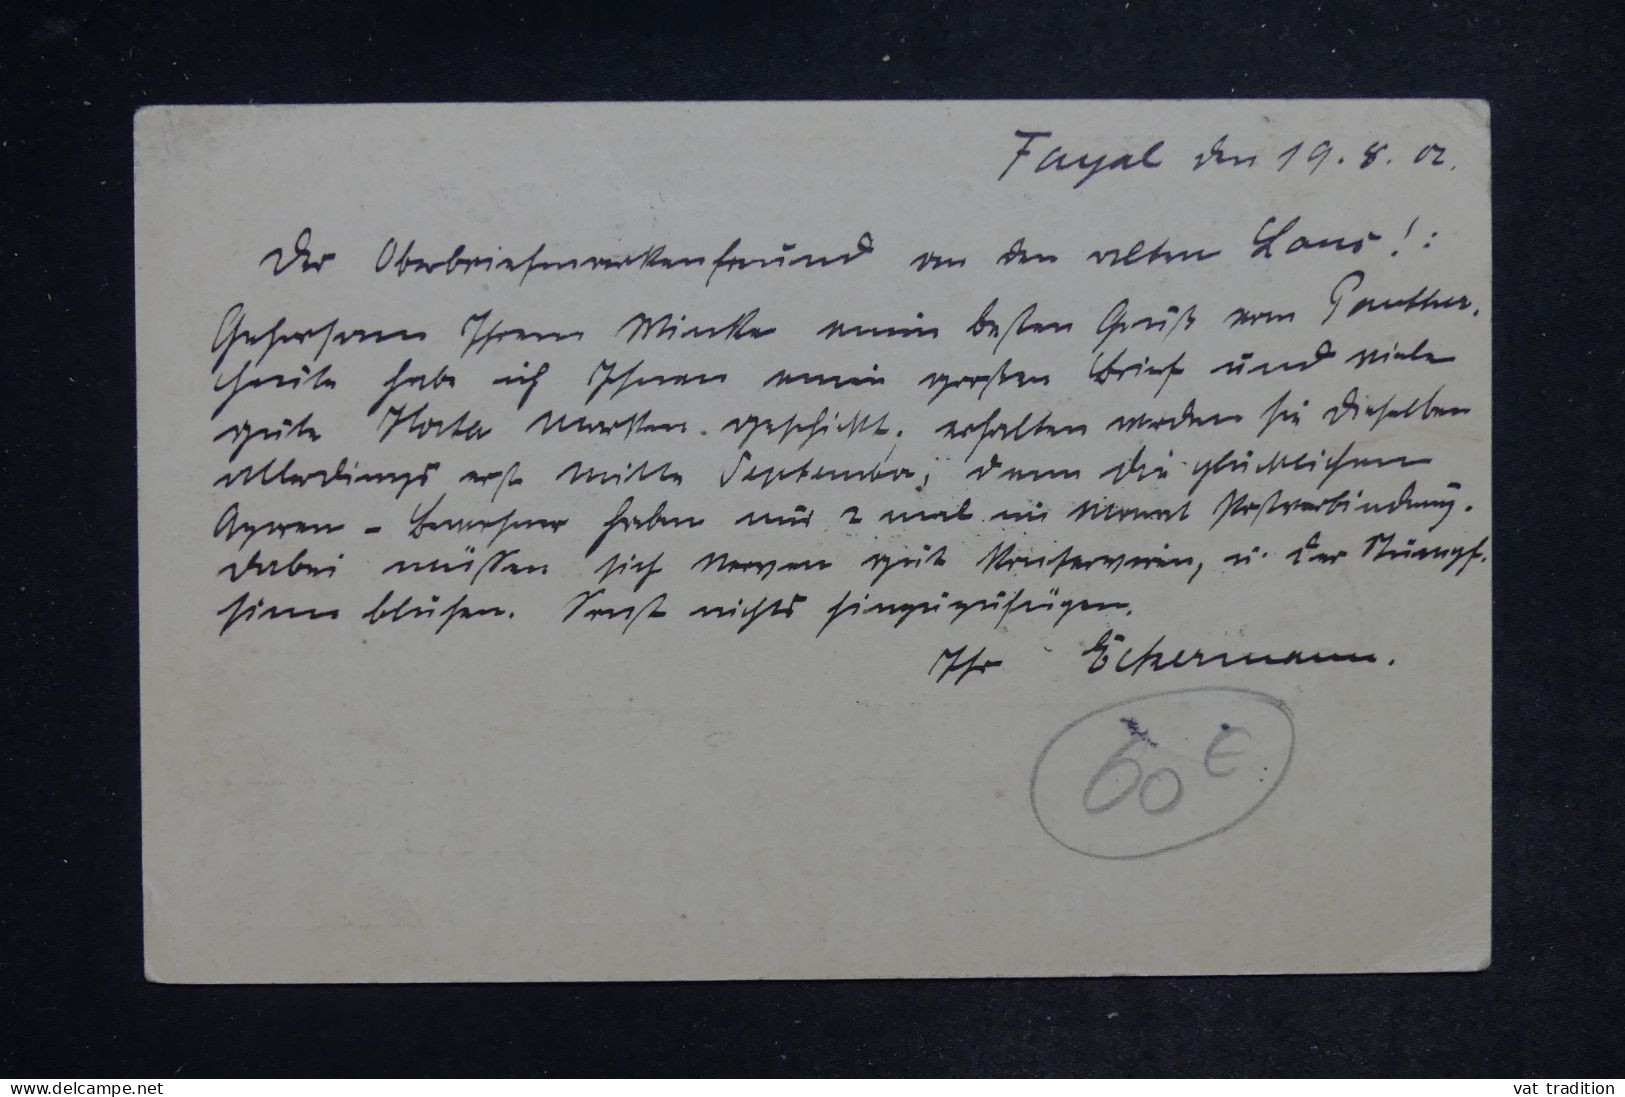 Fayal den 19. 8. 02.
Der Oberbriefmarkenfreund an den alten Lous!:
Gehorsam Ihrem Winke mein besten Gruß vom Panther.
heute habe ich Ihnen einen großen Brief und viele
gute Horta Marken geschickt. erhalten werden sie dieselben
allerdings erst Mitte September, denn die glücklichen
Azoren - Bewohner haben nur 2 mal im Monat Postverbindung.
dabei müssen sich Nerven gut konservieren, u. der Stumpf-
sinn blühen. Sonst nichts hinzuzufügen.
Ihr Eckermann.
60 €
delcampe.net
vat tradition